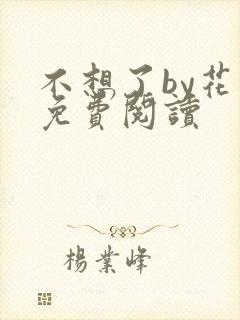 不想了by花
免費閱讀
楊業峰